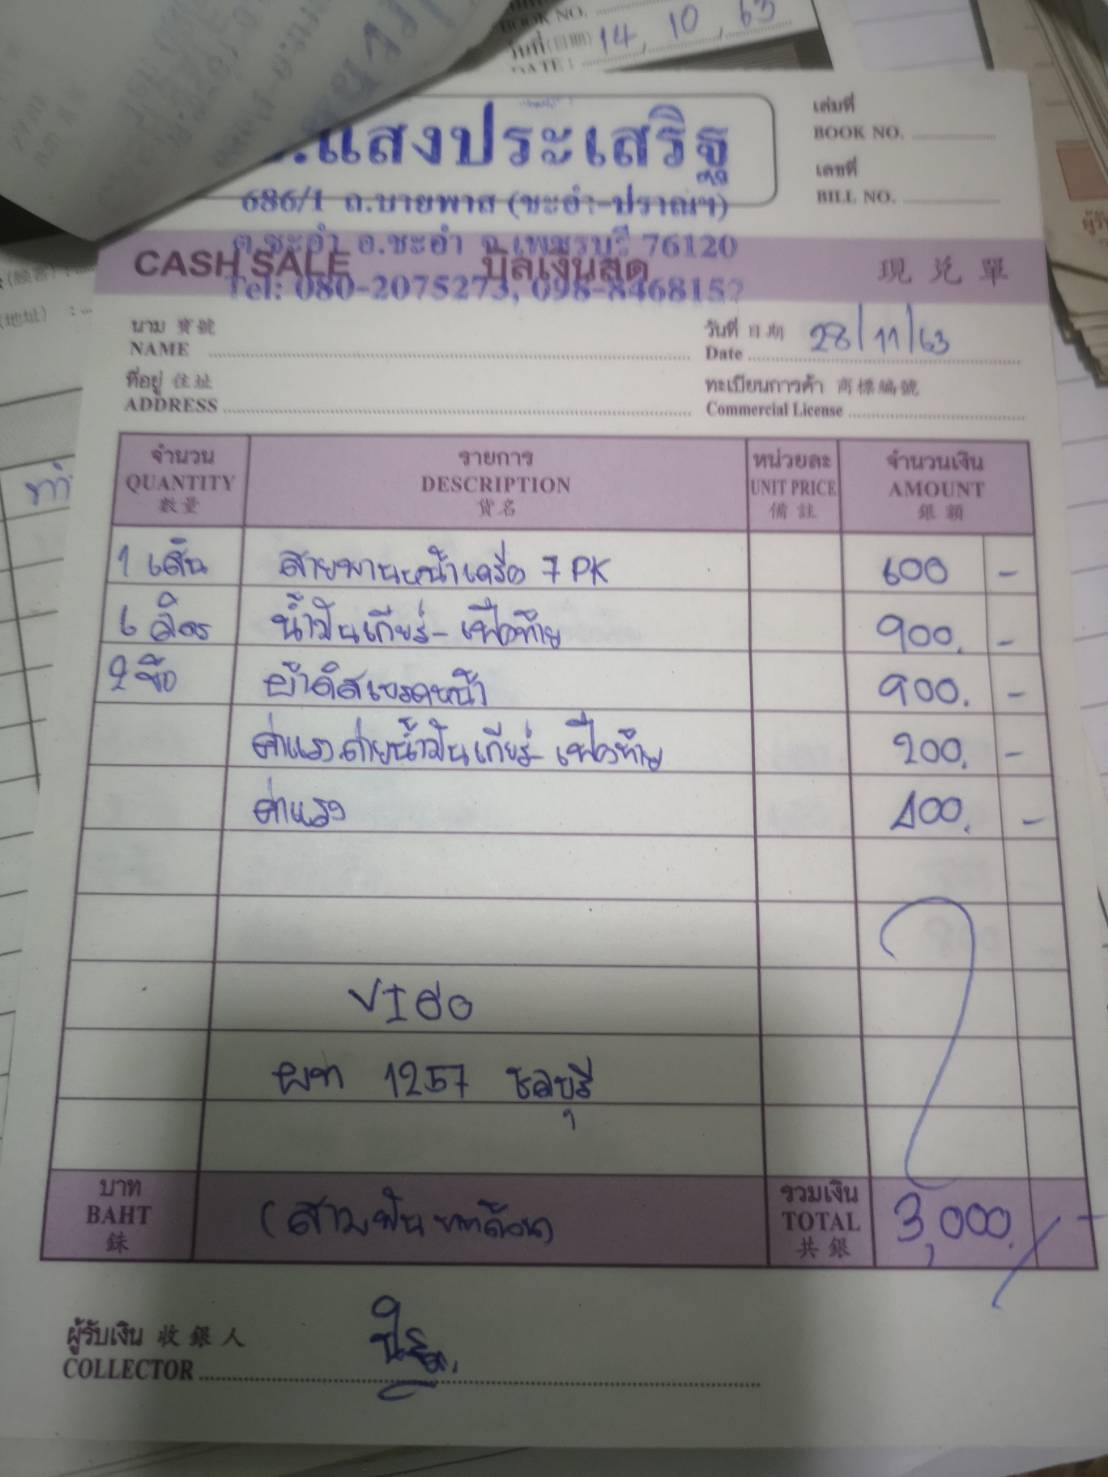 BOOK NO.
วันที่ (日期) 14, 10, 63
DATE :
.แสงประเสริฐ
686/1 ถ.บายพาส (ชะอำ-ปราณฯ)
ต.ชะอำ อ.ชะอำ จ.เพชรบุรี 76120
Tel: 080-2075273, 098-8468152
เล่มที่
BOOK NO.
เลขที่
BILL NO.
CASH SALE บิลเงินสด 現兌單
นาม 寳號
NAME
วันที่ 日期 28/11/63
Date
ที่อยู่ 住址
ADDRESS
ทะเบียนการค้า 商標編號
Commercial License
จำนวน รายการ หน่วยละ จำนวนเงิน
QUANTITY DESCRIPTION UNIT PRICE AMOUNT
數量 貨名 備註 銀額
1 เส้น สายพานหน้าเครื่อ 7 PK 600 -
6 ลิตร น้ำมันเกียร์-เฟืองท้าย 900. -
2 ข้อ ผ้าดิสเบรคหน้า 900. -
ค่าแรงถ่ายน้ำมันเกียร์-เฟืองท้าย 200. -
ค่าแรง 400. -
VIGO
ผท 1257 ชลบุรี
บาท รวมเงิน
BAHT (สามพันบาทถ้วน) TOTAL 3,000. -
銖 共銀
ผู้รับเงิน 收銀人
COLLECTOR